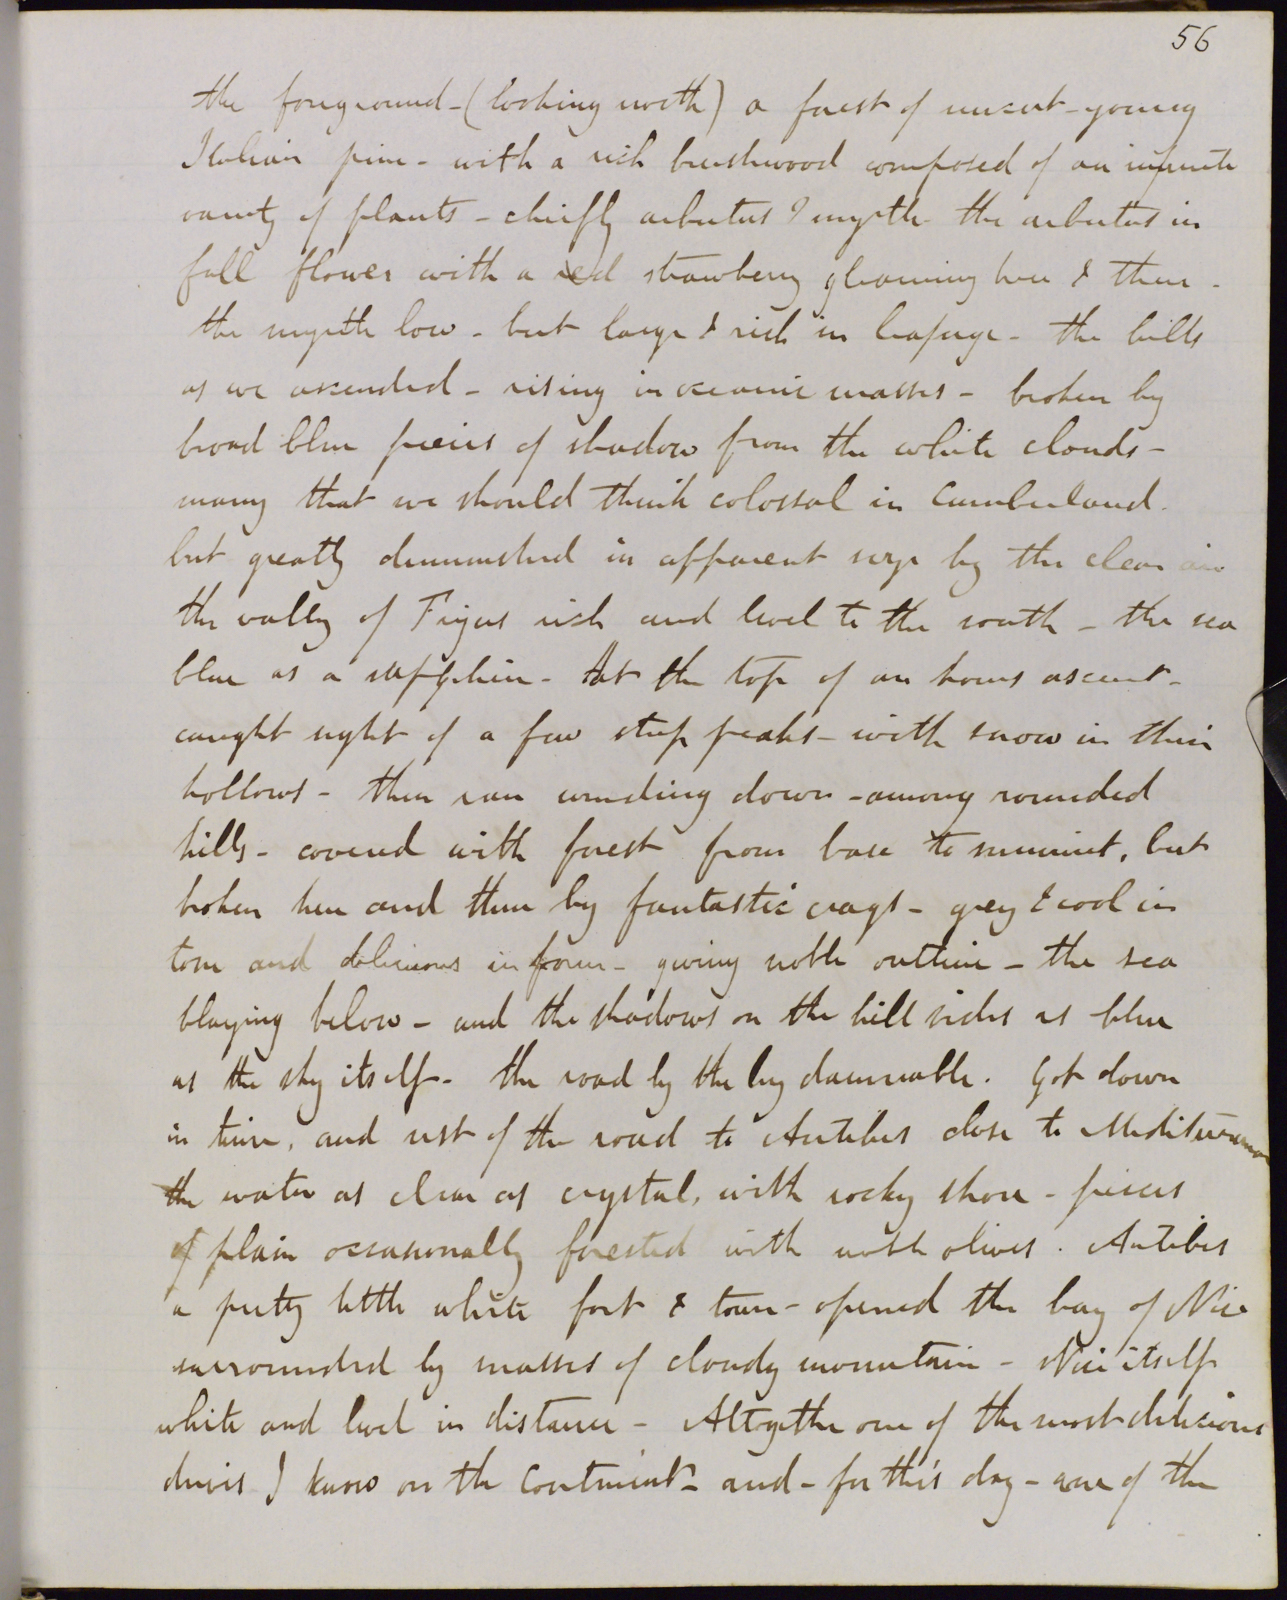 56
the foreground - (looking north) a forest of uncut - young
Italian pine - with a rich brushwood composed of an infinite
variety of plants - chiefly arbutus & myrtle - the arbutus in
full flower with a red strawberry gleaming here & there -
the myrtle low - but large & rich in leafage - the hills
as we ascended - rising in oceanic masses - broken by
broad blue pieces of shadow from the white clouds -
many that we should think colossal in Cumberland.
but greatly diminished in apparent size by the clear air
the valley of Frejus rich and level to the south - the sea
blue as a sapphire - At the top of an hours ascent -
caught sight of a few steep peaks - with snow in their
hollows - then ran winding down - among rounded
hills - covered with forest from base to summit, but
broken here and there by fantastic crags - grey & cool in
tone and delicious in form - giving noble outline - the sea
blazing below - and the shadows on the hill sides as blue
as the sky itself - the road by the by damnable. Got down
in time, and rest of the road to Antibes close to Mediterranean
the water as clear as crystal, with rocky shore - pieces
of plain occasionally forested with noble olives. Antibes
a pretty little white fort & town - opened the bay of Nice
surrounded by masses of cloudy mountain - Nice itself
white and level in distance - Altogether one of the most delicious
drives I know on the Continent - and - for this day - one of the